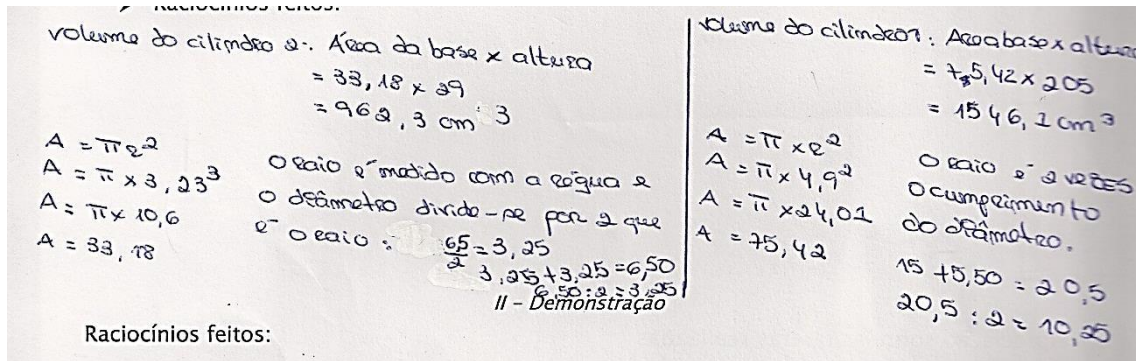 Raciocínios feitos:
volume do cilindro 2: Área da base x altura
= 33,18 x 29
= 962,3 cm 3
A = πr²
A = π x 3,23³
A = π x 10,6
A = 33,18
O raio é medido com a régua e
o diâmetro divide-se por 2 que
é o raio:
65/2 = 3,25
3,25+3,25=6,50
6,50:2=3,25
Volume do cilindro 1: Area base x altura
= 75,42 x 205
= 1546,1 cm³
A = π x r²
A = π x 4,9²
A = π x 24,01
A = 75,42
O raio é 2 vezes
o cumprimento
do diâmetro.
15 +5,50 = 20,5
20,5 : 2 = 10,25
II – Demonstração
Raciocínios feitos: